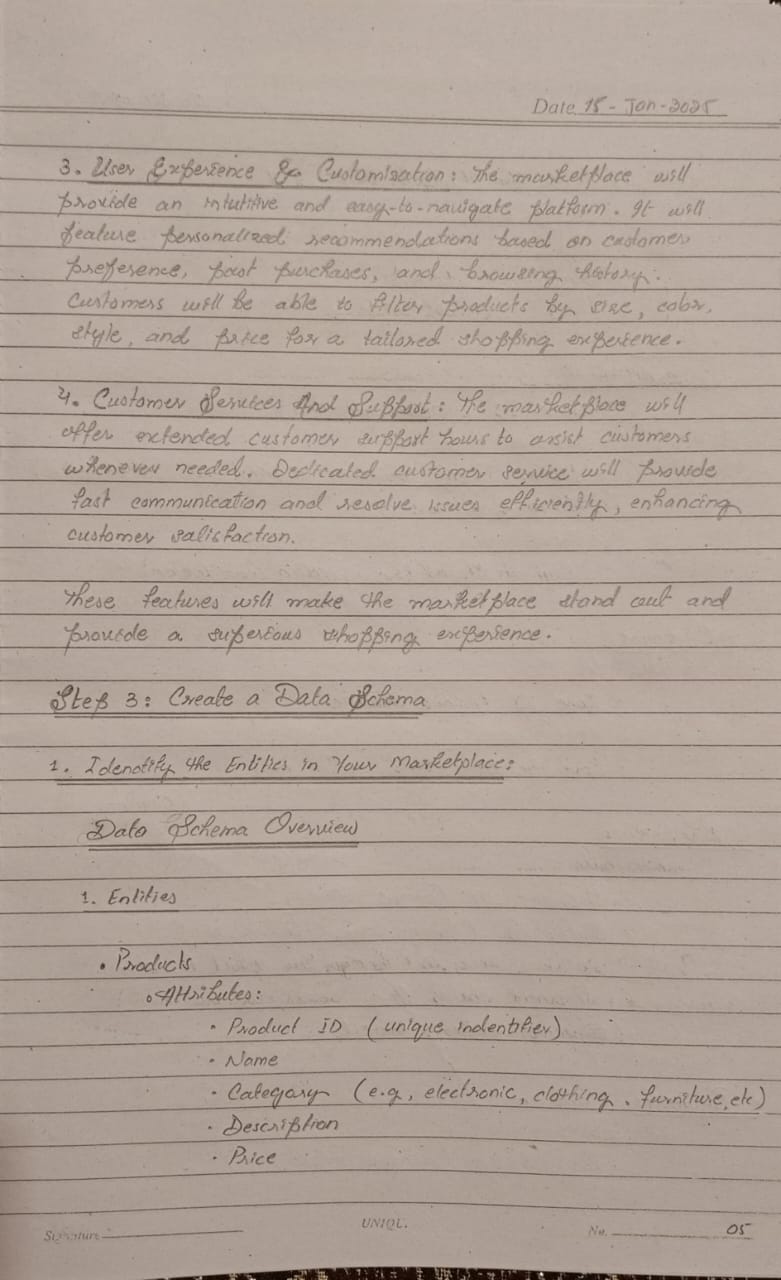 Date 15 - Jan - 2025
3. User Experience & Customization: The marketplace will
provide an intuitive and easy-to-navigate platform. It will
feature personalized recommendations based on customer
preference, past purchases, and browsing history.
Customers will be able to filter products by size, color,
style, and price for a tailored shopping experience.
4. Customer Services And Support: The marketplace will
offer extended customer support hours to assist customers
whenever needed. Dedicated customer service will provide
fast communication and resolve issues efficiently, enhancing
customer satisfaction.
These features will make the marketplace stand out and
provide a superious shopping experience.
Step 3: Create a Data Schema
1. Idenotify the Entities in Your Marketplace:
Data Schema Overview
1. Entities
• Products
• Attributes:
• Product ID (unique indentifier)
• Name
• Category (e.g, electronic, clothing, furniture, etc)
• Description
• Price
Signature
UNIQL.
No. 05